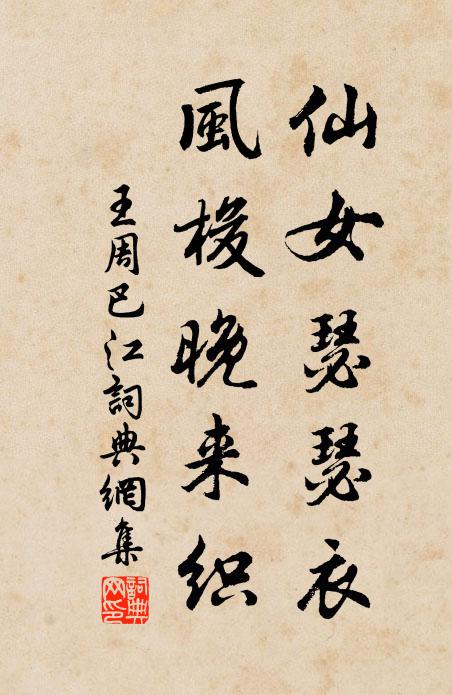 仙女瑟瑟衣
風梭晚来织
王周巴江詞典網集
詞典网印